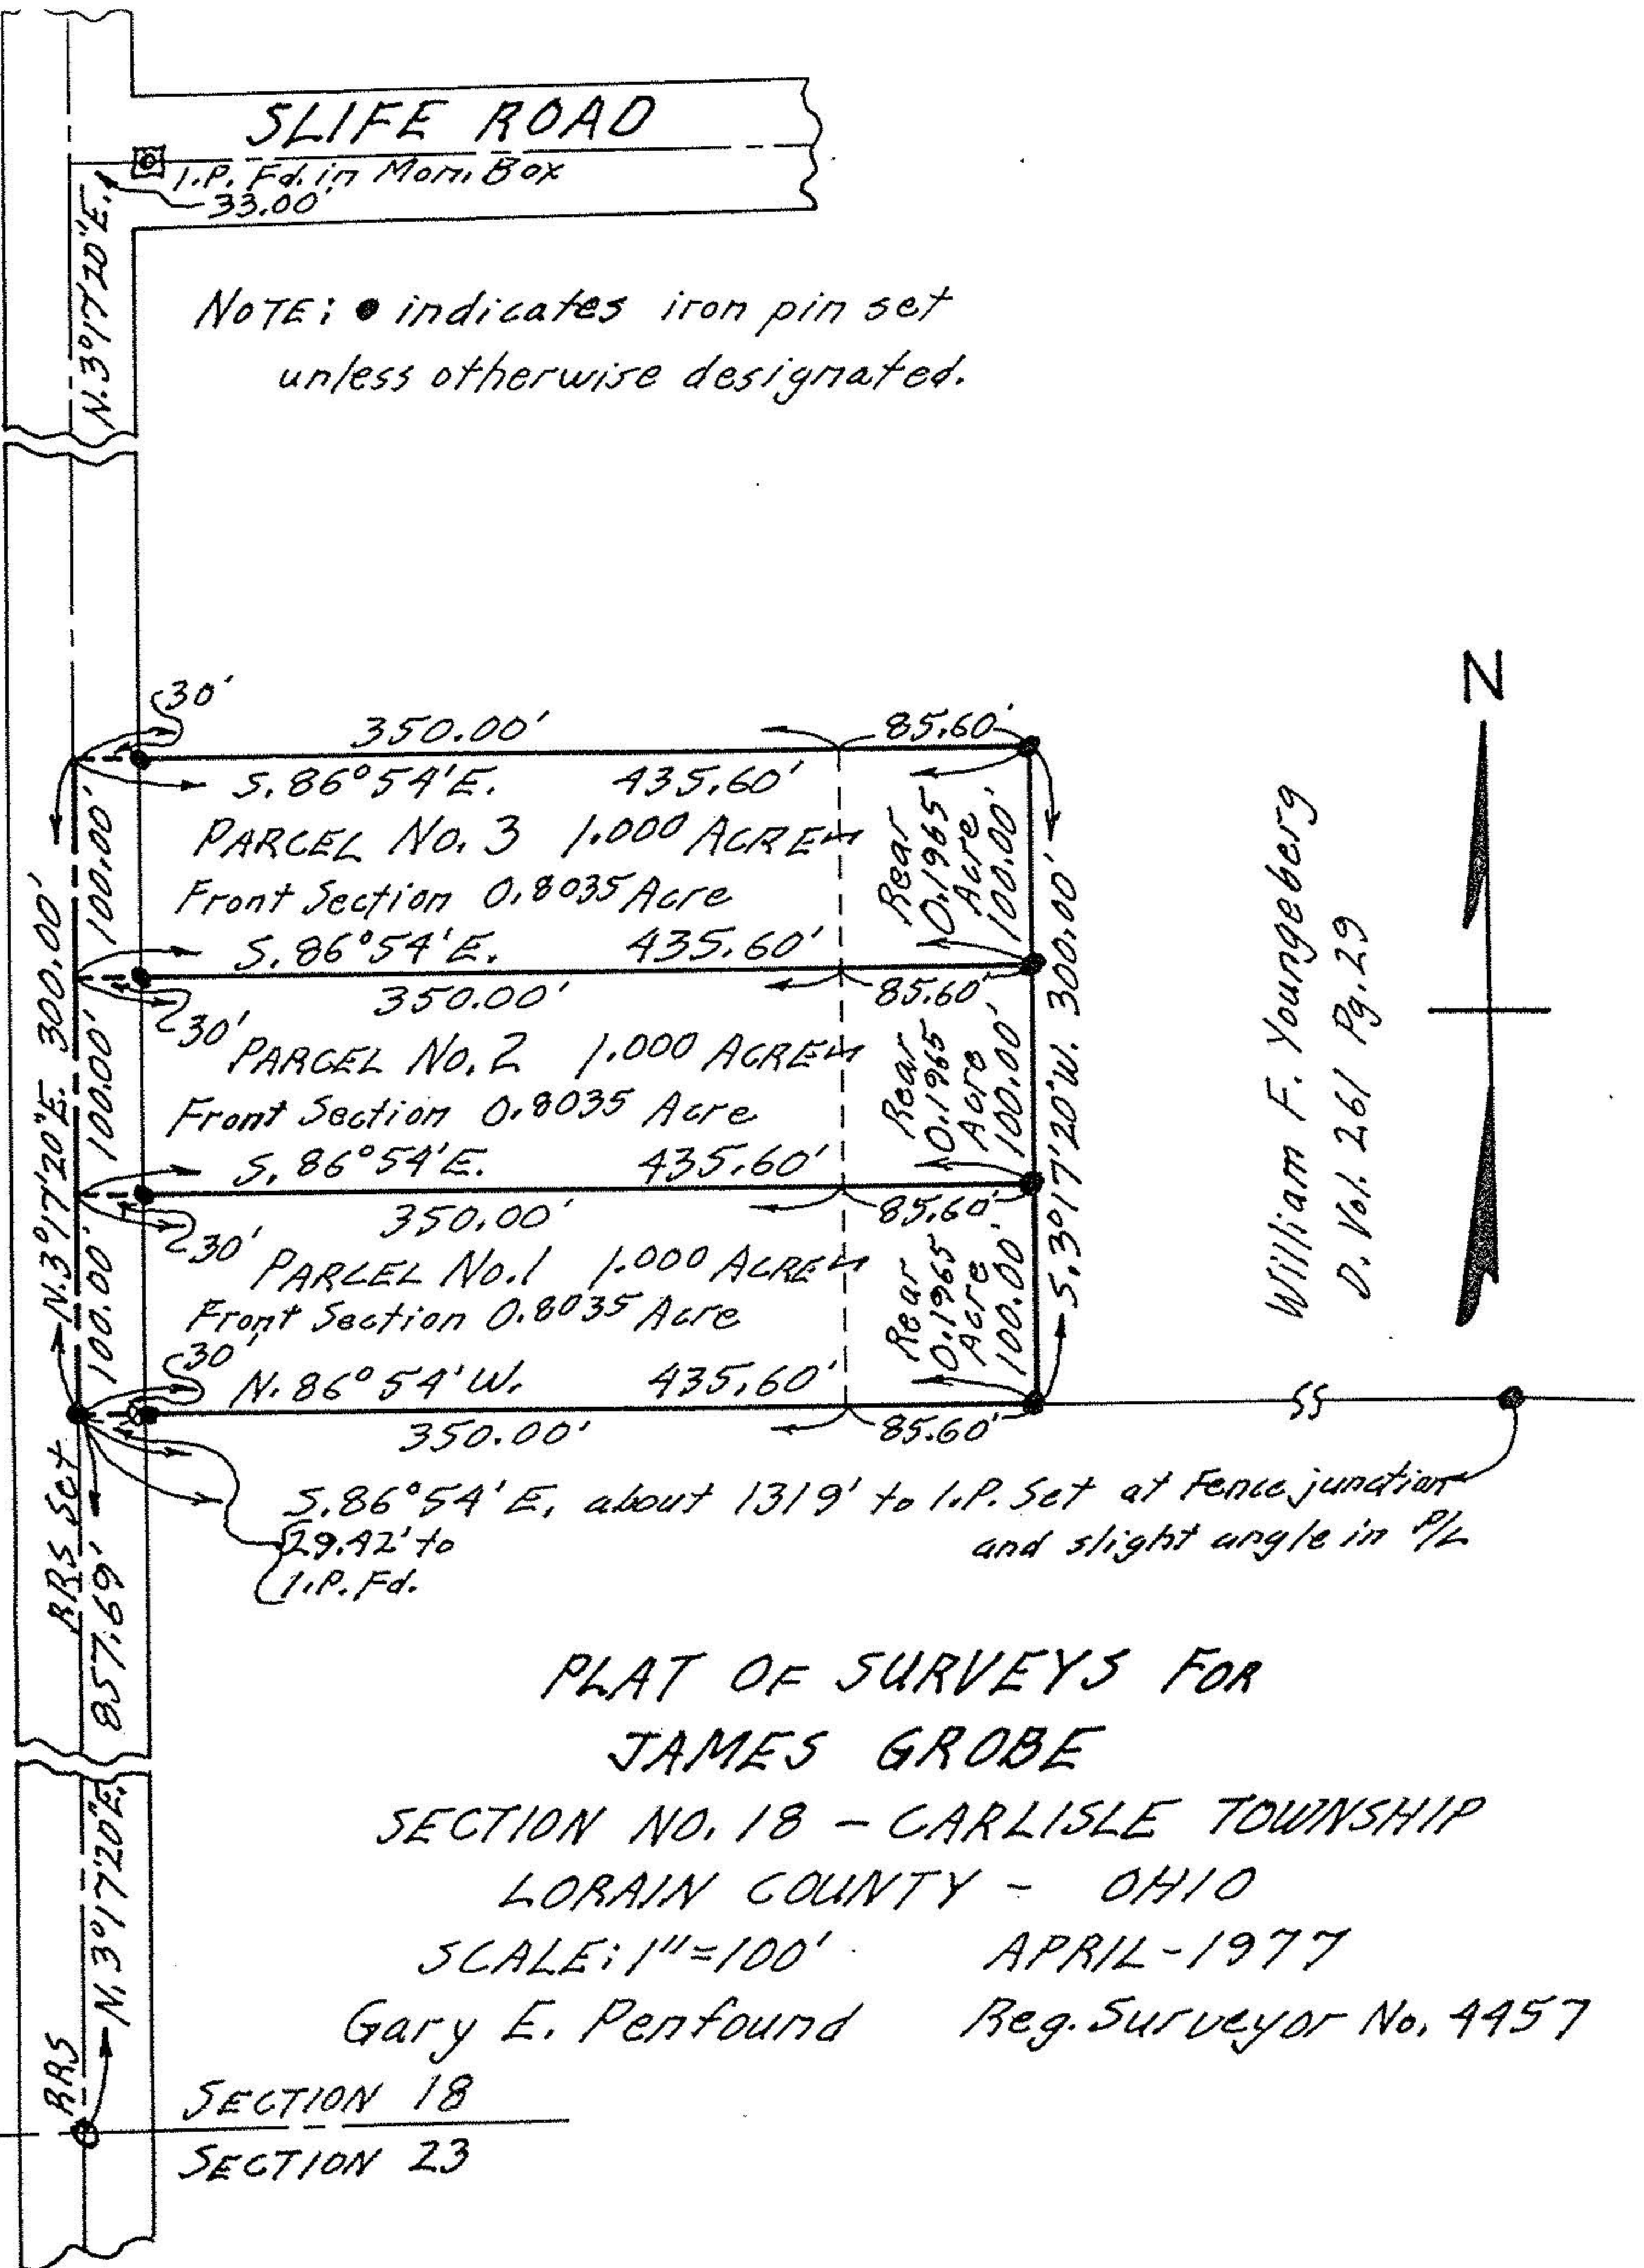 SLIFE ROAD
I.P. Fd. in Mon. Box
33.00'
N.3°17'20"E.
NOTE: ● indicates iron pin set
unless otherwise designated.
N
30'
350.00'
85.60'
S.86°54'E. 435.60'
PARCEL No. 3 1.000 ACRE
Front Section 0.8035 Acre
Rear
0.1965
Acre
100.00'
100.00'
S.86°54'E. 435.60'
350.00'
85.60'
30'
PARCEL No. 2 1.000 ACRE
Front Section 0.8035 Acre
Rear
0.1965
Acre
100.00'
100.00'
S.86°54'E. 435.60'
350.00'
85.60'
30'
PARCEL No. 1 1.000 ACRE
Front Section 0.8035 Acre
Rear
0.1965
Acre
100.00'
100.00'
30'
N.86°54'W. 435.60'
350.00'
85.60'
N.3°17'20"E. 300.00'
S.3°17'20"W. 300.00'
William F. Youngeberg
D. Vol. 261 Pg. 29
S.86°54'E. about 1319' to I.P. Set at Fence junction
and slight angle in P/L
29.42' to
I.P. Fd.
RRS Set
857.69'
N.3°17'20"E.
RRS
PLAT OF SURVEYS FOR
JAMES GROBE
SECTION NO. 18 - CARLISLE TOWNSHIP
LORAIN COUNTY - OHIO
SCALE: 1"=100' APRIL-1977
Gary E. Penfound Reg. Surveyor No. 4457
SECTION 18
SECTION 23